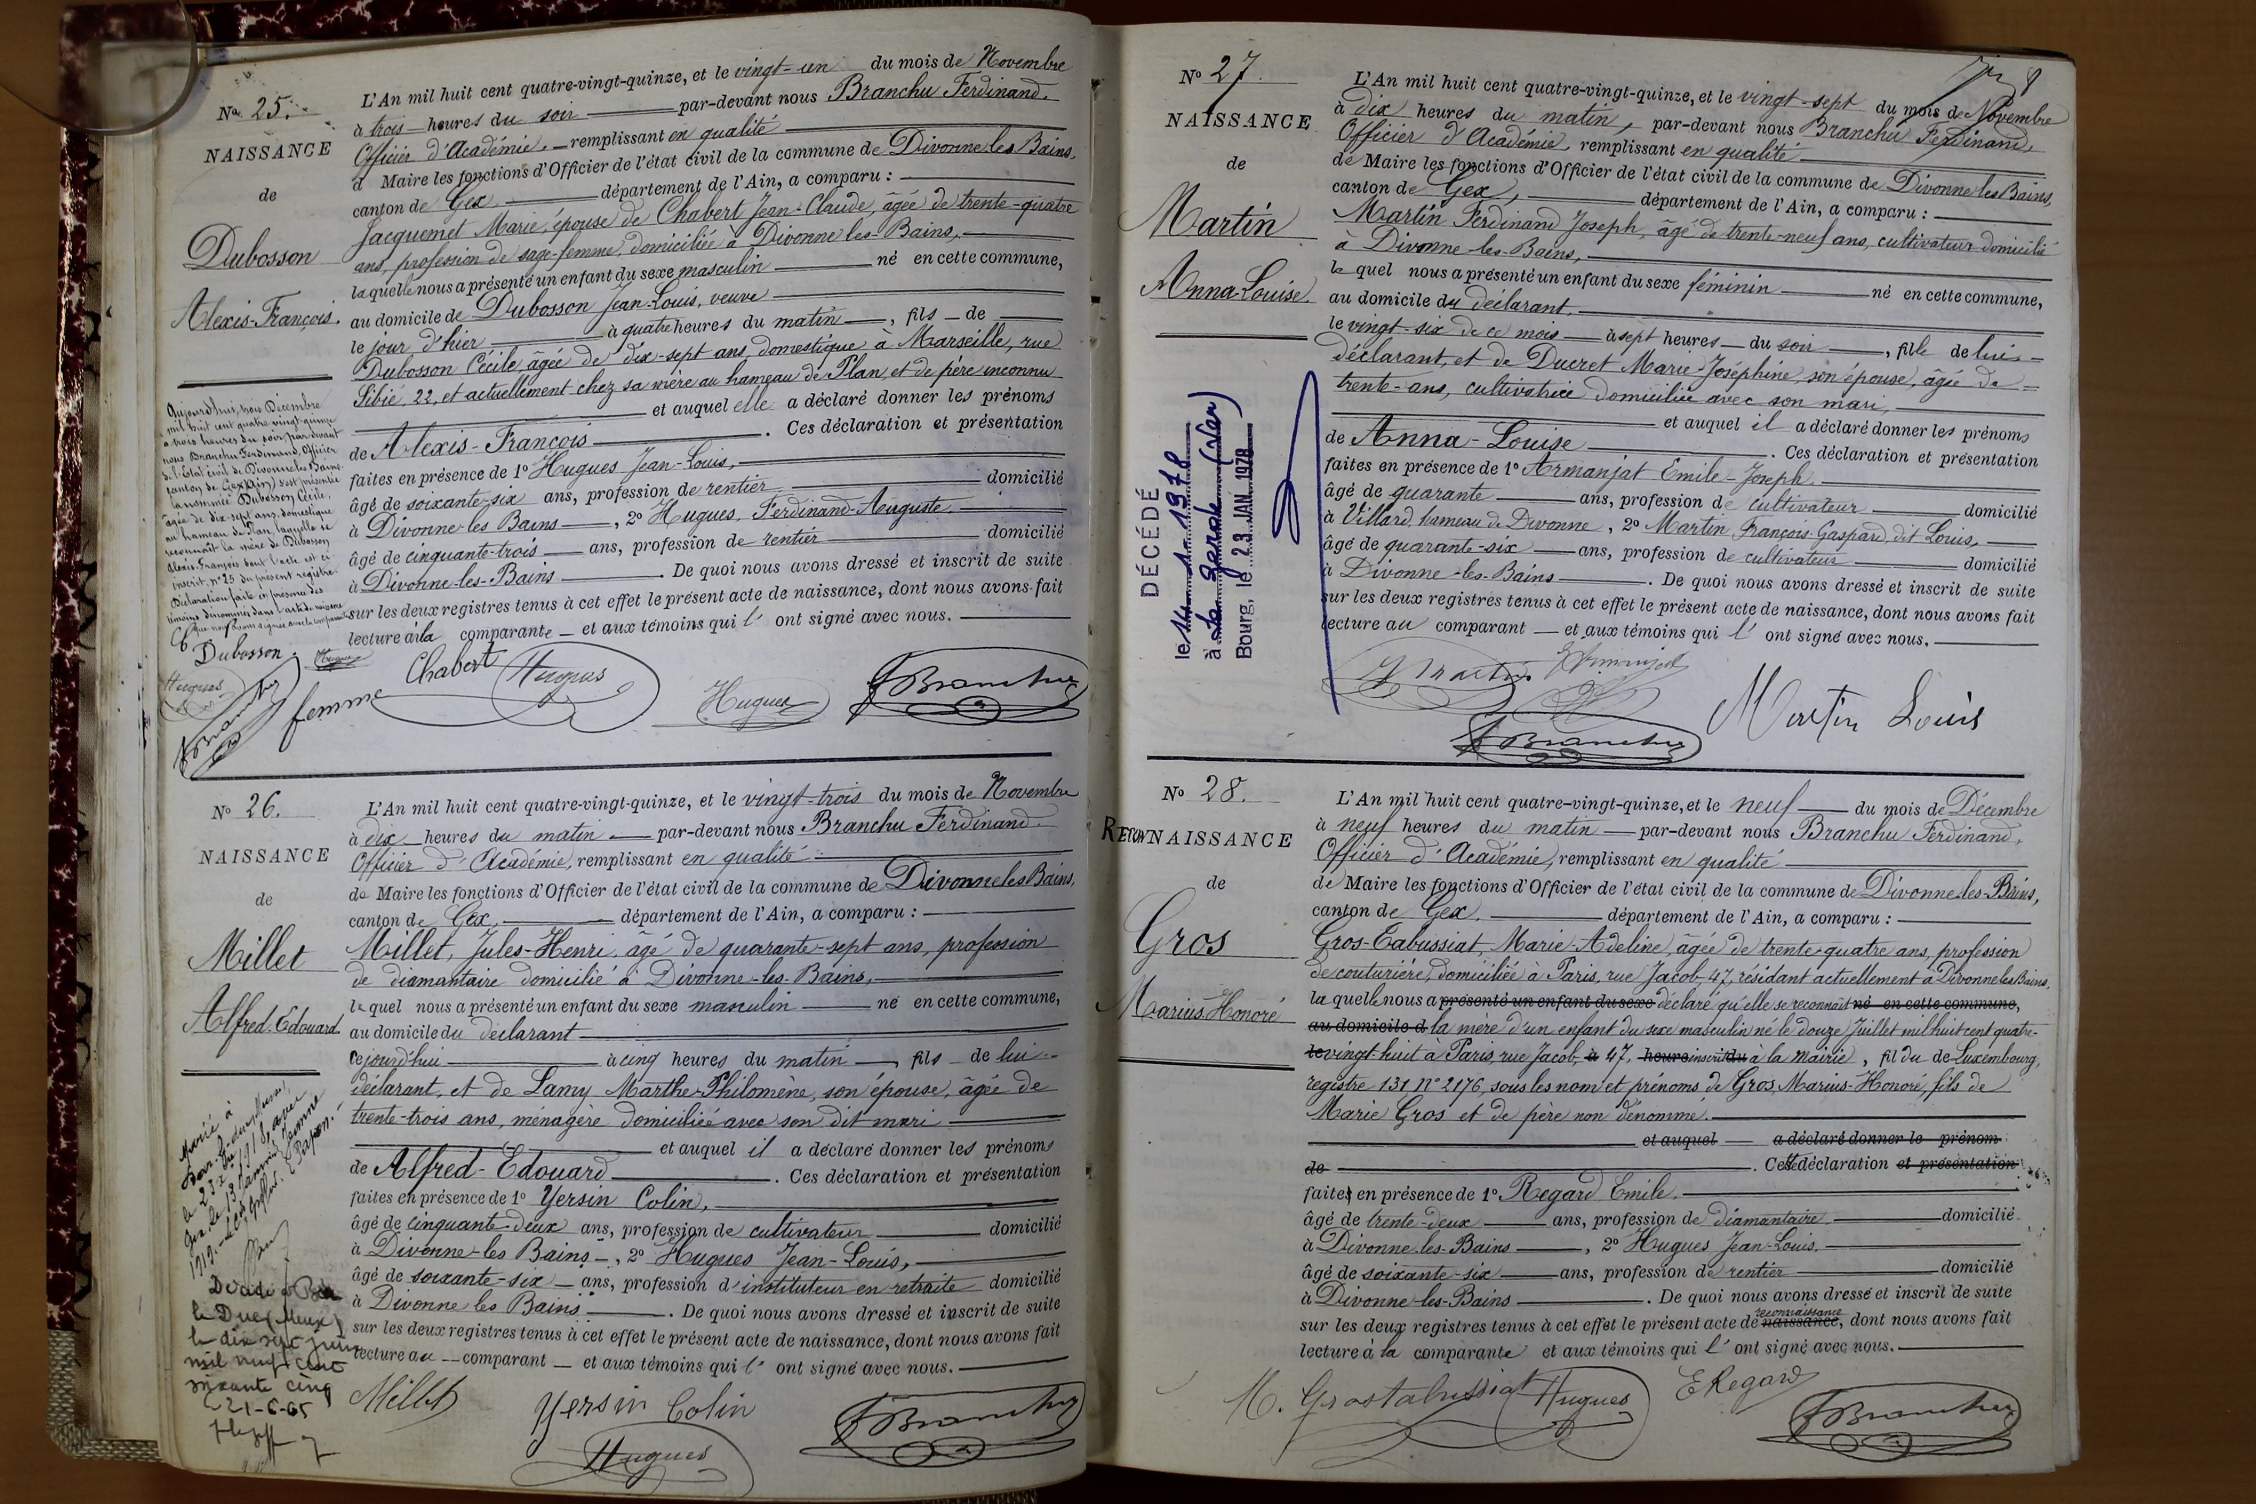 No 25.
NAISSANCE
de
Dubosson
Alexis-François.
L'An mil huit cent quatre-vingt-quinze, et le vingt-un du mois de Novembre
à trois heures du soir par-devant nous Branchu Ferdinand.
Officier d'Académie, remplissant en qualité
d Maire les fonctions d'Officier de l'état civil de la commune de Divonne les Bains,
canton de Gex département de l'Ain, a comparu :
Jacquemet Marie, épouse de Chabert Jean-Claude, âgée de trente-quatre
ans, profession de sage-femme, domiciliée à Divonne-les-Bains,
laquelle nous a présenté un enfant du sexe masculin né en cette commune,
au domicile de Dubosson Jean-Louis, veuve
le jour d'hier à quatre heures du matin, fils de
Dubosson Cécile, âgée de dix-sept ans, domestique à Marseille, rue
Sibié, 22, et actuellement chez sa mère au hameau de Plan, et de père inconnu
et auquel elle a déclaré donner les prénoms
de Alexis-François. Ces déclaration et présentation
faites en présence de 1o Hugues Jean-Louis,
âgé de soixante-six ans, profession de rentier domicilié
à Divonne les Bains, 2o Hugues, Ferdinand-Auguste,
âgé de cinquante-trois ans, profession de rentier domicilié
à Divonne-les-Bains. De quoi nous avons dressé et inscrit de suite
sur les deux registres tenus à cet effet le présent acte de naissance, dont nous avons fait
lecture à la comparante et aux témoins qui l' ont signé avec nous.
Aujourd'hui, trois Décembre
mil huit cent quatre-vingt-quinze
à trois heures du soir, par-devant
nous Branchu Ferdinand, Officier
de l'État civil de Divonne les Bains
canton de Gex (Ain) s'est présentée
la nommée Dubosson Cécile,
âgée de dix-sept ans, domestique
au hameau de Plan, laquelle se
reconnaît la mère de Dubosson
Alexis-François dont l'acte est ci
inscrit, no 25 du présent registre
Déclaration faite en présence des
témoins dénommés dans l'acte de naissance
C Dubosson
Hugues
Hugues
F Branchu
femme Chabert
Hugues
Hugues
F Branchu
No 26.
NAISSANCE
de
Millet
Alfred-Édouard
L'An mil huit cent quatre-vingt-quinze, et le vingt-trois du mois de Novembre
à dix heures du matin par-devant nous Branchu Ferdinand.
Officier d'Académie, remplissant en qualité
de Maire les fonctions d'Officier de l'état civil de la commune de Divonne les Bains,
canton de Gex, département de l'Ain, a comparu :
Millet, Jules-Henri, âgé de quarante-sept ans, profession
de diamantaire domicilié à Divonne-les-Bains,
lequel nous a présenté un enfant du sexe masculin né en cette commune,
au domicile du déclarant
cejourd'hui à cinq heures du matin, fils de lui
déclarant, et de Lamy Marthe-Philomène, son épouse, âgée de
trente-trois ans, ménagère domiciliée avec son dit mari
et auquel il a déclaré donner les prénoms
de Alfred-Édouard. Ces déclaration et présentation
faites en présence de 1o Yersin Colin,
âgé de cinquante-deux ans, profession de cultivateur domicilié
à Divonne-les Bains, 2o Hugues Jean-Louis,
âgé de soixante-six ans, profession d'instituteur en retraite domicilié
à Divonne les Bains. De quoi nous avons dressé et inscrit de suite
sur les deux registres tenus à cet effet le présent acte de naissance, dont nous avons fait
lecture au comparant et aux témoins qui l' ont signé avec nous.
Marié à
1919.
le dix sept juin
mil neuf cent
soixante cinq
21-6-65
Millet
Yersin Colin
Hugues
F Branchu
No 27.
NAISSANCE
de
Martin
Anna-Louise
L'An mil huit cent quatre-vingt-quinze, et le vingt-sept du mois de Novembre
à dix heures du matin, par-devant nous Branchu Ferdinand,
Officier d'Académie, remplissant en qualité
de Maire les fonctions d'Officier de l'état civil de la commune de Divonne les Bains,
canton de Gex, département de l'Ain, a comparu :
Martin Ferdinand Joseph, âgé de trente-neuf ans, cultivateur domicilié
à Divonne-les-Bains,
lequel nous a présenté un enfant du sexe féminin né en cette commune,
au domicile du déclarant.
le vingt-six de ce mois à sept heures du soir, fille de lui
déclarant, et de Ducret Marie-Joséphine, son épouse, âgée de
trente-ans, cultivatrice domiciliée avec son mari,
et auquel il a déclaré donner les prénoms
de Anna-Louise. Ces déclaration et présentation
faites en présence de 1o Armanjat Emile-Joseph
âgé de quarante ans, profession de cultivateur domicilié
à Villard, hameau de Divonne, 2o Martin François-Gaspard, dit Louis,
âgé de quarante-six ans, profession de cultivateur domicilié
à Divonne-les-Bains. De quoi nous avons dressé et inscrit de suite
sur les deux registres tenus à cet effet le présent acte de naissance, dont nous avons fait
lecture au comparant et aux témoins qui l' ont signé avec nous.
DÉCÉDÉ
le 14.1.1978
Bourg, le 23 JAN. 1978
Martin
Martin Louis
F Branchu
No 28.
RECONNAISSANCE
de
Gros
Marius-Honoré
L'An mil huit cent quatre-vingt-quinze, et le neuf du mois de Décembre
à neuf heures du matin par-devant nous Branchu Ferdinand,
Officier d'Académie, remplissant en qualité
de Maire les fonctions d'Officier de l'état civil de la commune de Divonne-les-Bains,
canton de Gex. département de l'Ain, a comparu :
Gros-Tabussiat, Marie-Adeline, âgée de trente-quatre ans, profession
de couturière, domiciliée à Paris, rue Jacob, 47, résidant actuellement à Divonne les Bains.
laquelle nous a présenté un enfant du sexe déclaré qu'elle se reconnaît né en cette commune,
au domicile d la mère d'un enfant du sexe masculin né le douze Juillet mil huit cent quatre-
le vingt huit à Paris, rue Jacob, à 47, heure inscrit du à la mairie, fil du de Luxembourg,
registre 131 no 2176, sous les nom et prénoms de Gros, Marius-Honoré, fils de
Marie Gros et de père non dénommé.
et auquel a déclaré donner le prénom
de . Cette déclaration et présentation
faites en présence de 1o Regard Emile.
âgé de trente-deux ans, profession de diamantaire domicilié
à Divonne-les-Bains, 2o Hugues Jean-Louis.
âgé de soixante-six ans, profession de rentier domicilié
à Divonne-les-Bains. De quoi nous avons dressé et inscrit de suite
sur les deux registres tenus à cet effet le présent acte de naissance reconnaissance, dont nous avons fait
lecture à la comparante et aux témoins qui l' ont signé avec nous.
M. Grostabussiat
Hugues
E Regard
F Branchu